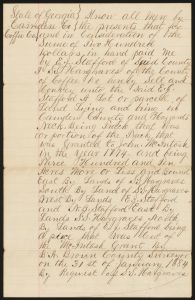 State of Georgia } Know all men by
Camden Co } the presents that for
and in Consideration of the
Sum of Two Hundred
Dollars in hand paid me
by E. J. Stafford of Said County
I S. S. Hargraves of the County
of Coffee Do hereby Sell and
Convey unto the Said E. J.
Stafford A Lot or parcel of
Land Lying and being in
Camden County and
Neck Being Such that was
a portion of the Tract that
was Granted to John McIntosh
in the Year 1874 and being
Three Hundred and
Acres More or Less and Bound
East By Lands of S. Hargraves
South By Lands of S. S. Hargraves
West By Lands R. Stafford
and North East by
Lands S. S. Hargraves North
By Lands of E. J. Stafford being
a place of the West of
the McIntosh Grant By
B. R. Brown County Surveyor
on the 31st of January 1884
By Request of S. S. Hargraves